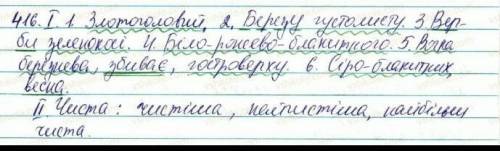 416. I. 1. Злотоголовий. 2. Березу густолисту. 3. Вер-
би зеленокосі. 4. Біло-рожево-блакитного. 5. Вона
березнева, збиває, гостроверху. 6. Сіро-блакитних,
весна.
II. Чиста: чистіша, найчистіша, найбільш
чиста.